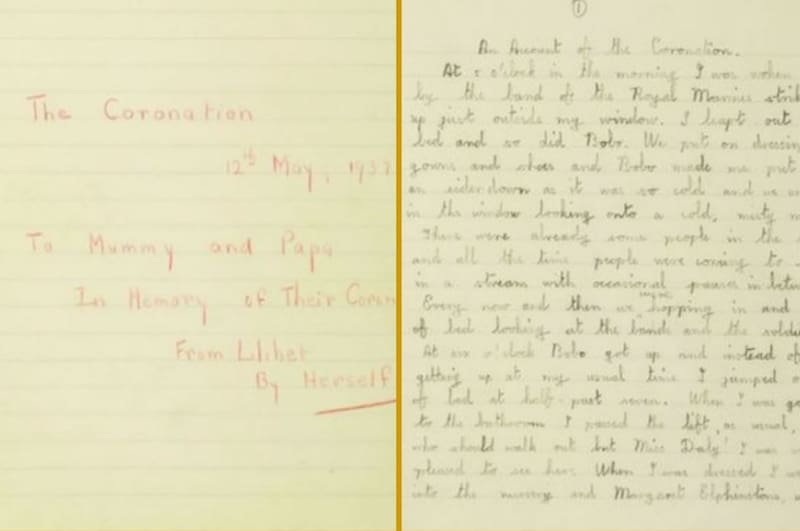 The Coronation
12th May, 1937
To Mummy and Papa
In Memory of Their Coron
From Lilibet
By Herself
1
An Account of the Coronation.
At 5 o'clock in the morning I was woken
by the band of the Royal Marines strik
up just outside my window. I leapt out
bed and so did Bobo. We put on dressin
gowns and shoes and Bobo made me put
an eiderdown as it was so cold and we
in the window looking onto a cold, misty m
There were already some people in the
and all the time people were coming to
in a stream with occasional pauses in betw
Every now and then we were hopping in and
of bed looking at the bands and the soldi
At six o'clock Bobo got up and instead of
getting up at my usual time I jumped o
of bed at half-past seven. When I was go
to the bathroom I passed the lift, as usual,
who should walk out but Miss Daly! I was
pleased to see her. When I was dressed I w
into the nursery and Margaret Elphinstone,